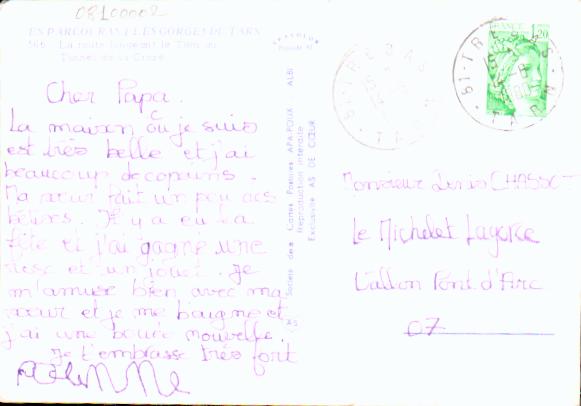 08100002
EN PARCOURANT LES GORGES DU TARN
La route longeant le Tarn au
Tunnel de la Croze
Cher Papa.
La maison où je suis
est très belle et j'ai
beaucoup de copains.
Ma sœur fait un peu des
Il y a eu la
fête et j'ai gagné une
et un jouet. Je
m'amuse bien avec ma
sœur et je me baigne et
j'ai une bouée nouvelle.
Je t'embrasse très fort
Société des Cartes Postales APA-POUX ALBI
Reproduction interdite
Exclusivité AS DE CŒUR
FRANCE
1,20
Monsieur Denis
Le Michelet
Vallon Pont d'Arc
07